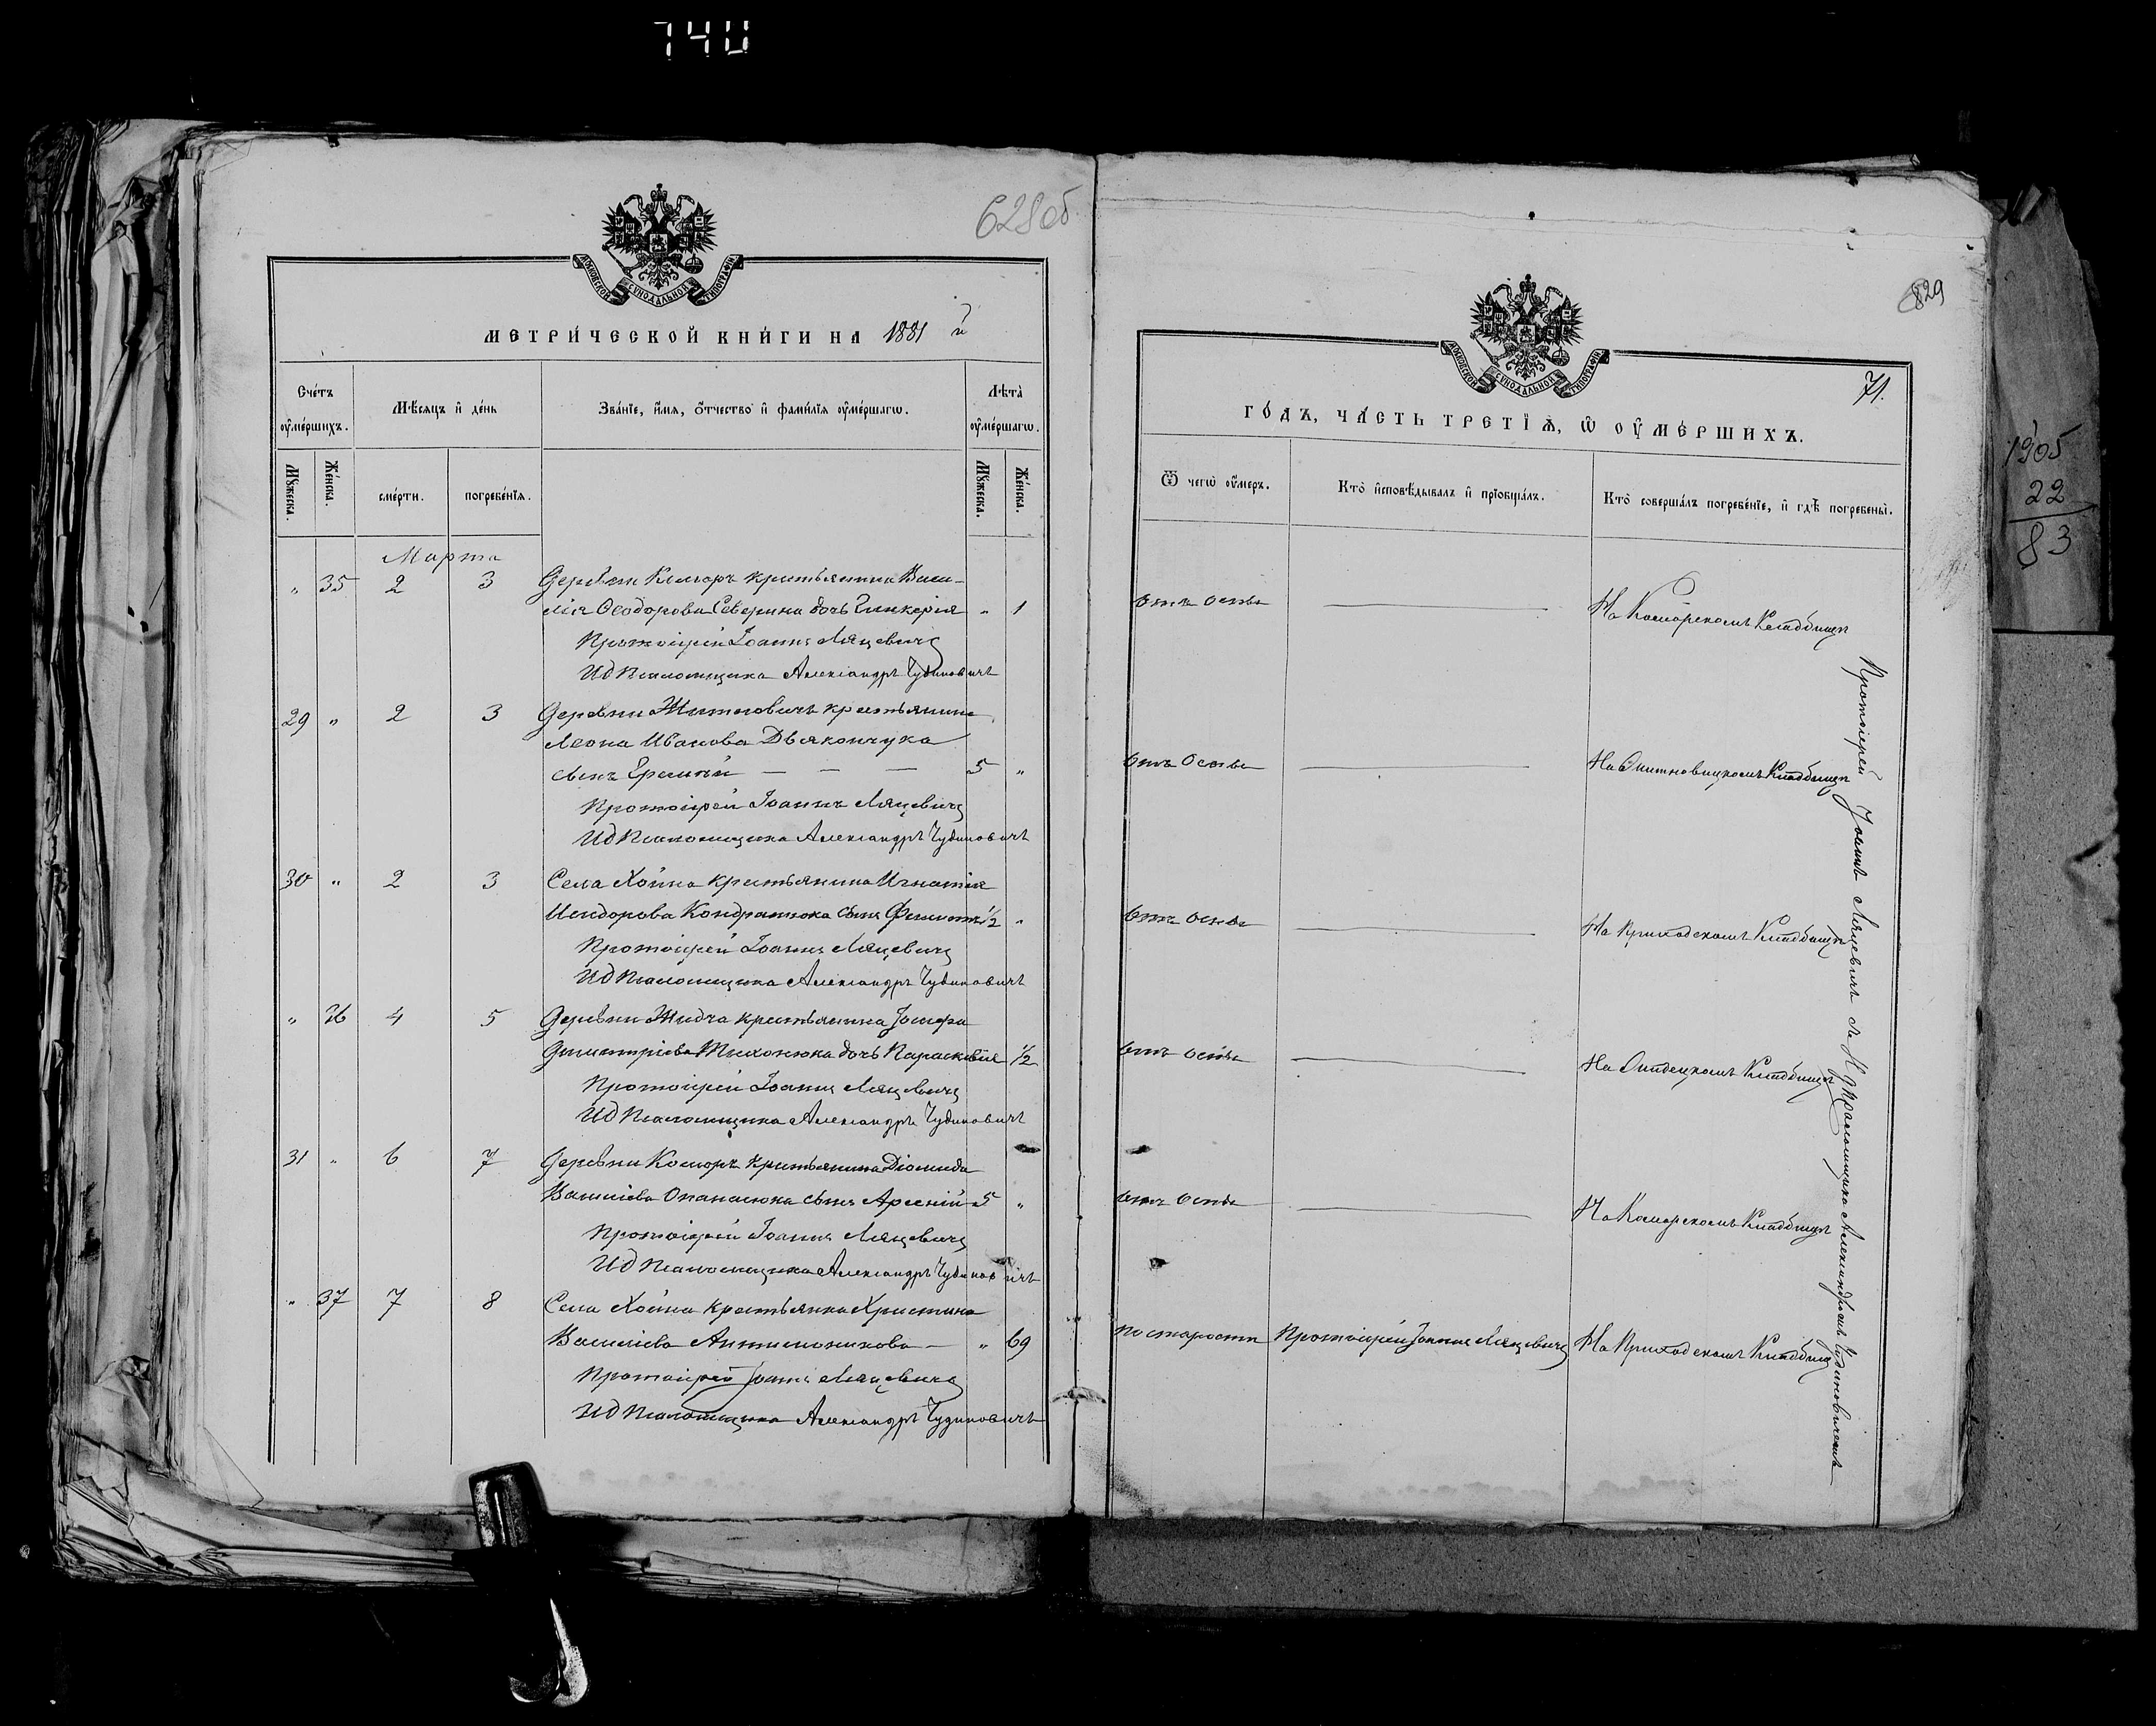 740
628об
МОСКОВСКОЙ СУНОДАЛЬНОЙ ТИПОГРАФІИ
МЕТРИ́ЧЕСКОЙ КНИ́ГИ НА 1881 й
Сче́тъ оумéршихъ.
Мѣ́сяцъ и де́нь
Зва́нїе, и́мя, о́тчество и фами́лїя оуме́ршагѡ.
Лѣта̀ оуме́ршагѡ.
Мꙋжеска.
Же́нска.
сме́рти.
погребе́нїя.
Мꙋжеска.
Же́нска.
Марта
„ 35 2 3 Деревни Коморъ крестьянина Васи-
лія Ѳеодорова Северина дочь Гликерія „ 1
Протоіерей Іоаннъ Ляцевичъ
Ид Псаломщика Александръ Чудиновичъ
29 „ 2 3 Деревни Житновичъ крестьянина
Леона Иванова Дьякончука
сынъ Еремій — — — 5 „
Протоіерей Іоаннъ Ляцевичъ
Ид Псаломщика Александръ Чудиновичъ
30 „ 2 3 Села Хойна крестьянина Игнатія
Исидорова Кондратюка сынъ 1/2 „
Протоіерей Іоаннъ Ляцевичъ
Ид Псаломщика Александръ Чудиновичъ
„ 36 4 5 Деревни крестьянина Іосифа
Димитріева Тихонюка дочь Параскевія 1/2
Протоіерей Іоаннъ Ляцевичъ
Ид Псаломщика Александръ Чудиновичъ
31 „ 6 7 Деревни Коморъ крестьянина Діомида
Василіева Опанасюка сынъ Арсеній 5 „
Протоіерей Іоаннъ Ляцевичъ
Ид Псаломщика Александръ Чудиновичъ
„ 37 7 8 Села Хойна крестьянка Христина
Василіева — „ 69
Протоіерей Іоаннъ Ляцевичъ
Ид Псаломщика Александръ Чудиновичъ
829
МОСКОВСКОЙ СУНОДАЛЬНОЙ ТИПОГРАФІИ
71.
ГО́ДЪ, ЧА́СТЬ ТРЕТЇѦ, Ѡ ОУМЕ́РШИХЪ.
Ѿ чегѡ̀ оу́меръ.
Кто̀ и́сповѣ́дывалъ и прїобща́лъ.
Кто̀ соверша́лъ погребе́нїе, и гдѣ̀ погребены̀.
отъ оспы — На Коморскомъ Кладбищѣ
отъ Оспы — На Житновицкомъ Кладбищѣ
отъ оспы — На Приходскомъ Кладбищѣ
отъ оспы — На Кладбищѣ
отъ оспы — На Коморскомъ Кладбищѣ
по старости Протоіерей Іоаннъ Ляцевичъ На Приходскомъ Кладбищѣ
Протоіерей Іоаннъ Ляцевичъ съ Псаломщикомъ Александромъ Чудиновичемъ
1905
22
83